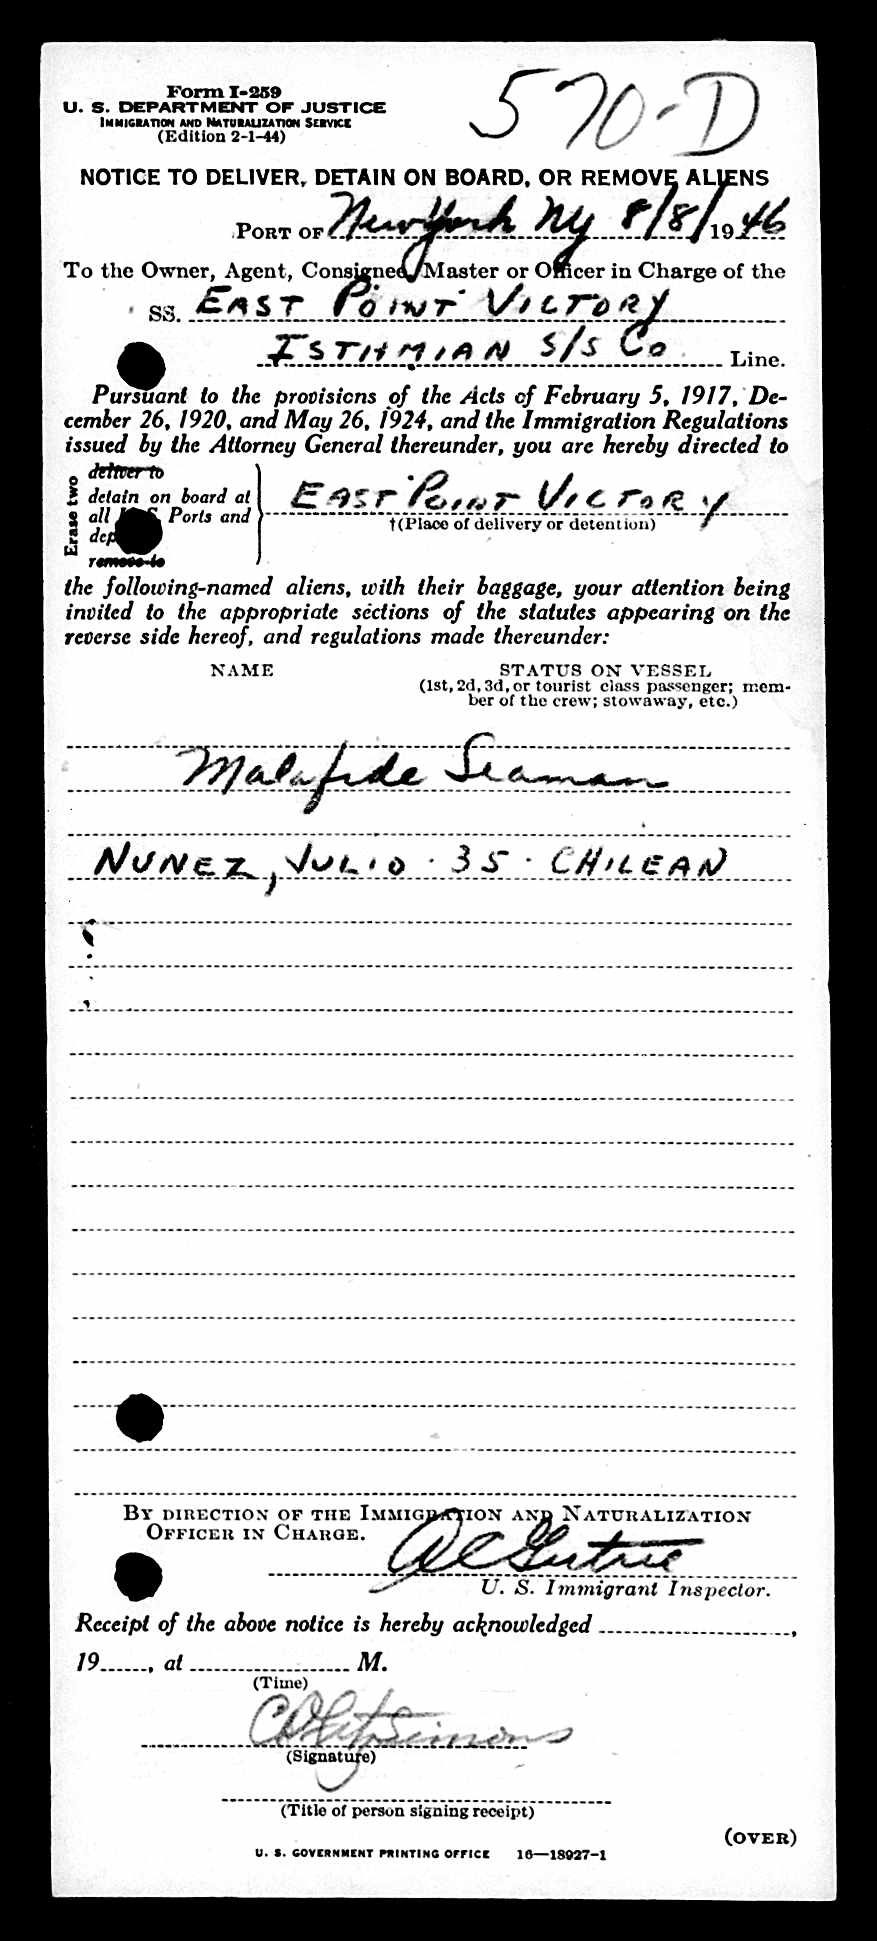 Form I-259
U. S. DEPARTMENT OF JUSTICE
IMMIGRATION AND NATURALIZATION SERVICE
(Edition 2-1-44)
570-D
NOTICE TO DELIVER, DETAIN ON BOARD, OR REMOVE ALIENS
PORT OF New York Ny 8/8/1946
To the Owner, Agent, Consignee, Master or Officer in Charge of the
SS. EAST POINT VICTORY
ISTHMIAN S/S Co. Line.
Pursuant to the provisions of the Acts of February 5, 1917, De-
cember 26, 1920, and May 26, 1924, and the Immigration Regulations
issued by the Attorney General thereunder, you are hereby directed to
Erase two
deliver to
detain on board at
all Ports and
remove to
EAST POINT VICTORY
†(Place of delivery or detention)
the following-named aliens, with their baggage, your attention being
invited to the appropriate sections of the statutes appearing on the
reverse side hereof, and regulations made thereunder:
NAME STATUS ON VESSEL
(1st, 2d, 3d, or tourist class passenger; mem-
ber of the crew; stowaway, etc.)
Malafide Seaman
NUNEZ, JULIO · 35 · CHILEAN
BY DIRECTION OF THE IMMIGRATION AND NATURALIZATION
OFFICER IN CHARGE.
U. S. Immigrant Inspector.
Receipt of the above notice is hereby acknowledged ,
19 , at M.
(Time)
(Signature)
(Title of person signing receipt)
(OVER)
U. S. GOVERNMENT PRINTING OFFICE 16—18927-1